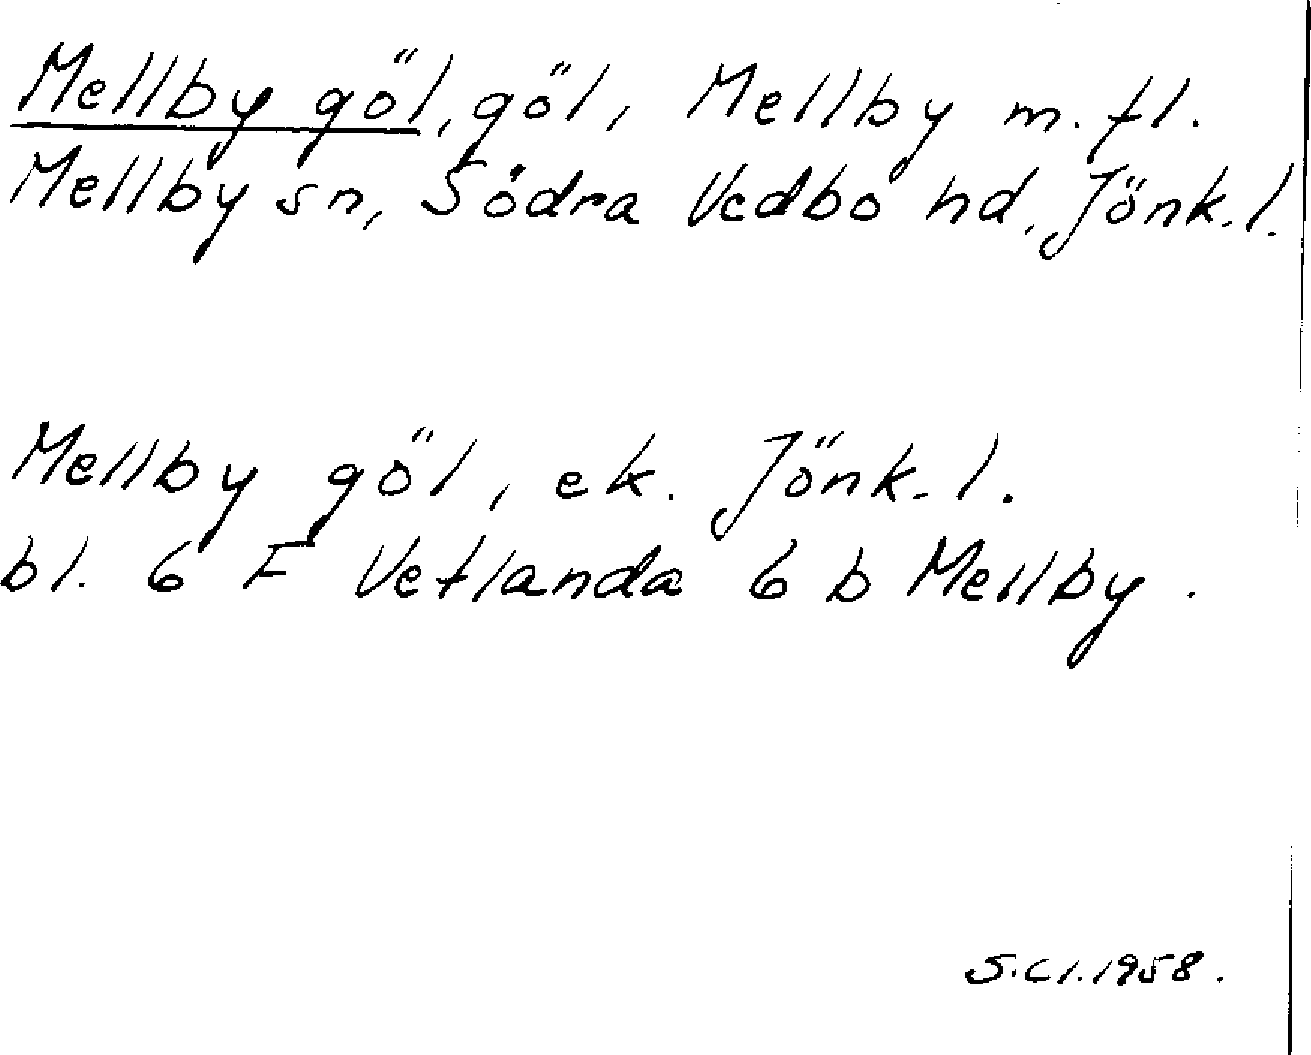 Mellby göl, göl, Mellby m.fl.
Mellby sn, Södra Vedbo hd, Jönk.l.
Mellby göl, ek. Jönk.l.
bl. 6 F Vetlanda 6 b Mellby.
S.Cl.1958.